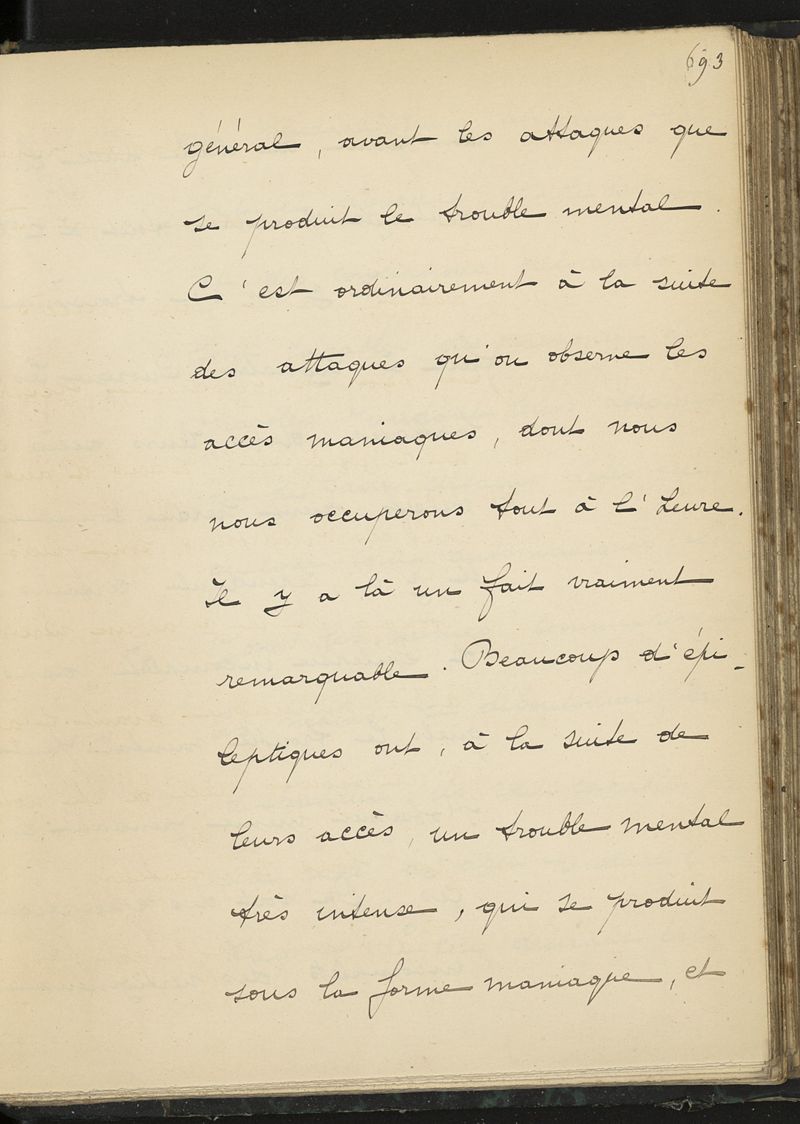 693
général, avant les attaques que
se produit le trouble mental.
C'est ordinairement à la suite
des attaques qu'on observe les
accès maniaques, dont nous
nous occuperons tout à l'heure.
Il y a là un fait vraiment
remarquable. Beaucoup d'épi-
leptiques ont, à la suite de
leurs accès, un trouble mental
très intense, qui se produit
sous la forme maniaque, et